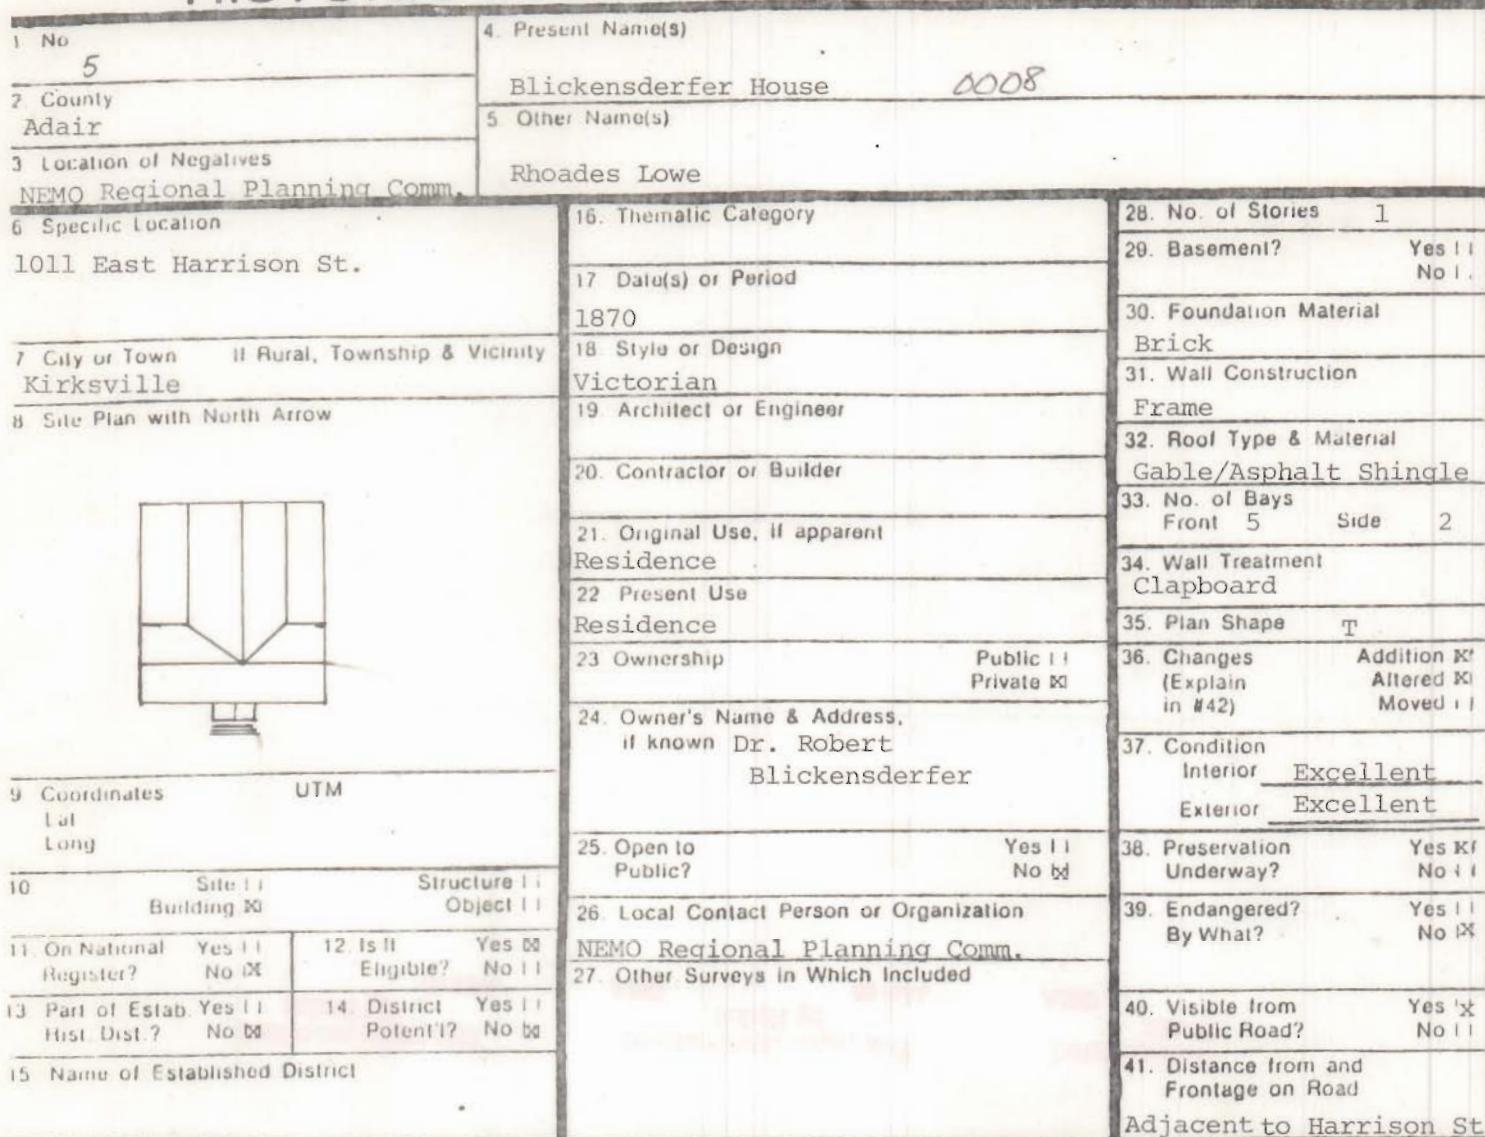 1 No
5
2 County
Adair
3 Location of Negatives
NEMO Regional Planning Comm.
4. Present Name(s)
Blickensderfer House 0008
5 Other Name(s)
Rhoades Lowe
6 Specific Location
1011 East Harrison St.
7 City or Town If Rural, Township & Vicinity
Kirksville
8 Site Plan with North Arrow
9 Coordinates UTM
Lat
Long
10 Site Structure
Building Object
11. On National Register? Yes No
12. Is It Eligible? Yes No
13 Part of Estab. Hist. Dist.? Yes No
14. District Potent'l? Yes No
15 Name of Established District
16. Thematic Category
17 Date(s) or Period
1870
18 Style or Design
Victorian
19. Architect or Engineer
20. Contractor or Builder
21. Original Use, if apparent
Residence
22 Present Use
Residence
23 Ownership Public
Private
24. Owner's Name & Address,
if known Dr. Robert
Blickensderfer
25. Open to Yes
Public? No
26. Local Contact Person or Organization
NEMO Regional Planning Comm.
27. Other Surveys in Which Included
28. No. of Stories 1
29. Basement? Yes
No
30. Foundation Material
Brick
31. Wall Construction
Frame
32. Roof Type & Material
Gable/Asphalt Shingle
33. No. of Bays
Front 5 Side 2
34. Wall Treatment
Clapboard
35. Plan Shape T
36. Changes Addition X
(Explain Altered X
in #42) Moved
37. Condition
Interior Excellent
Exterior Excellent
38. Preservation Yes X
Underway? No
39. Endangered? Yes
By What? No X
40. Visible from Yes X
Public Road? No
41. Distance from and
Frontage on Road
Adjacent to Harrison St